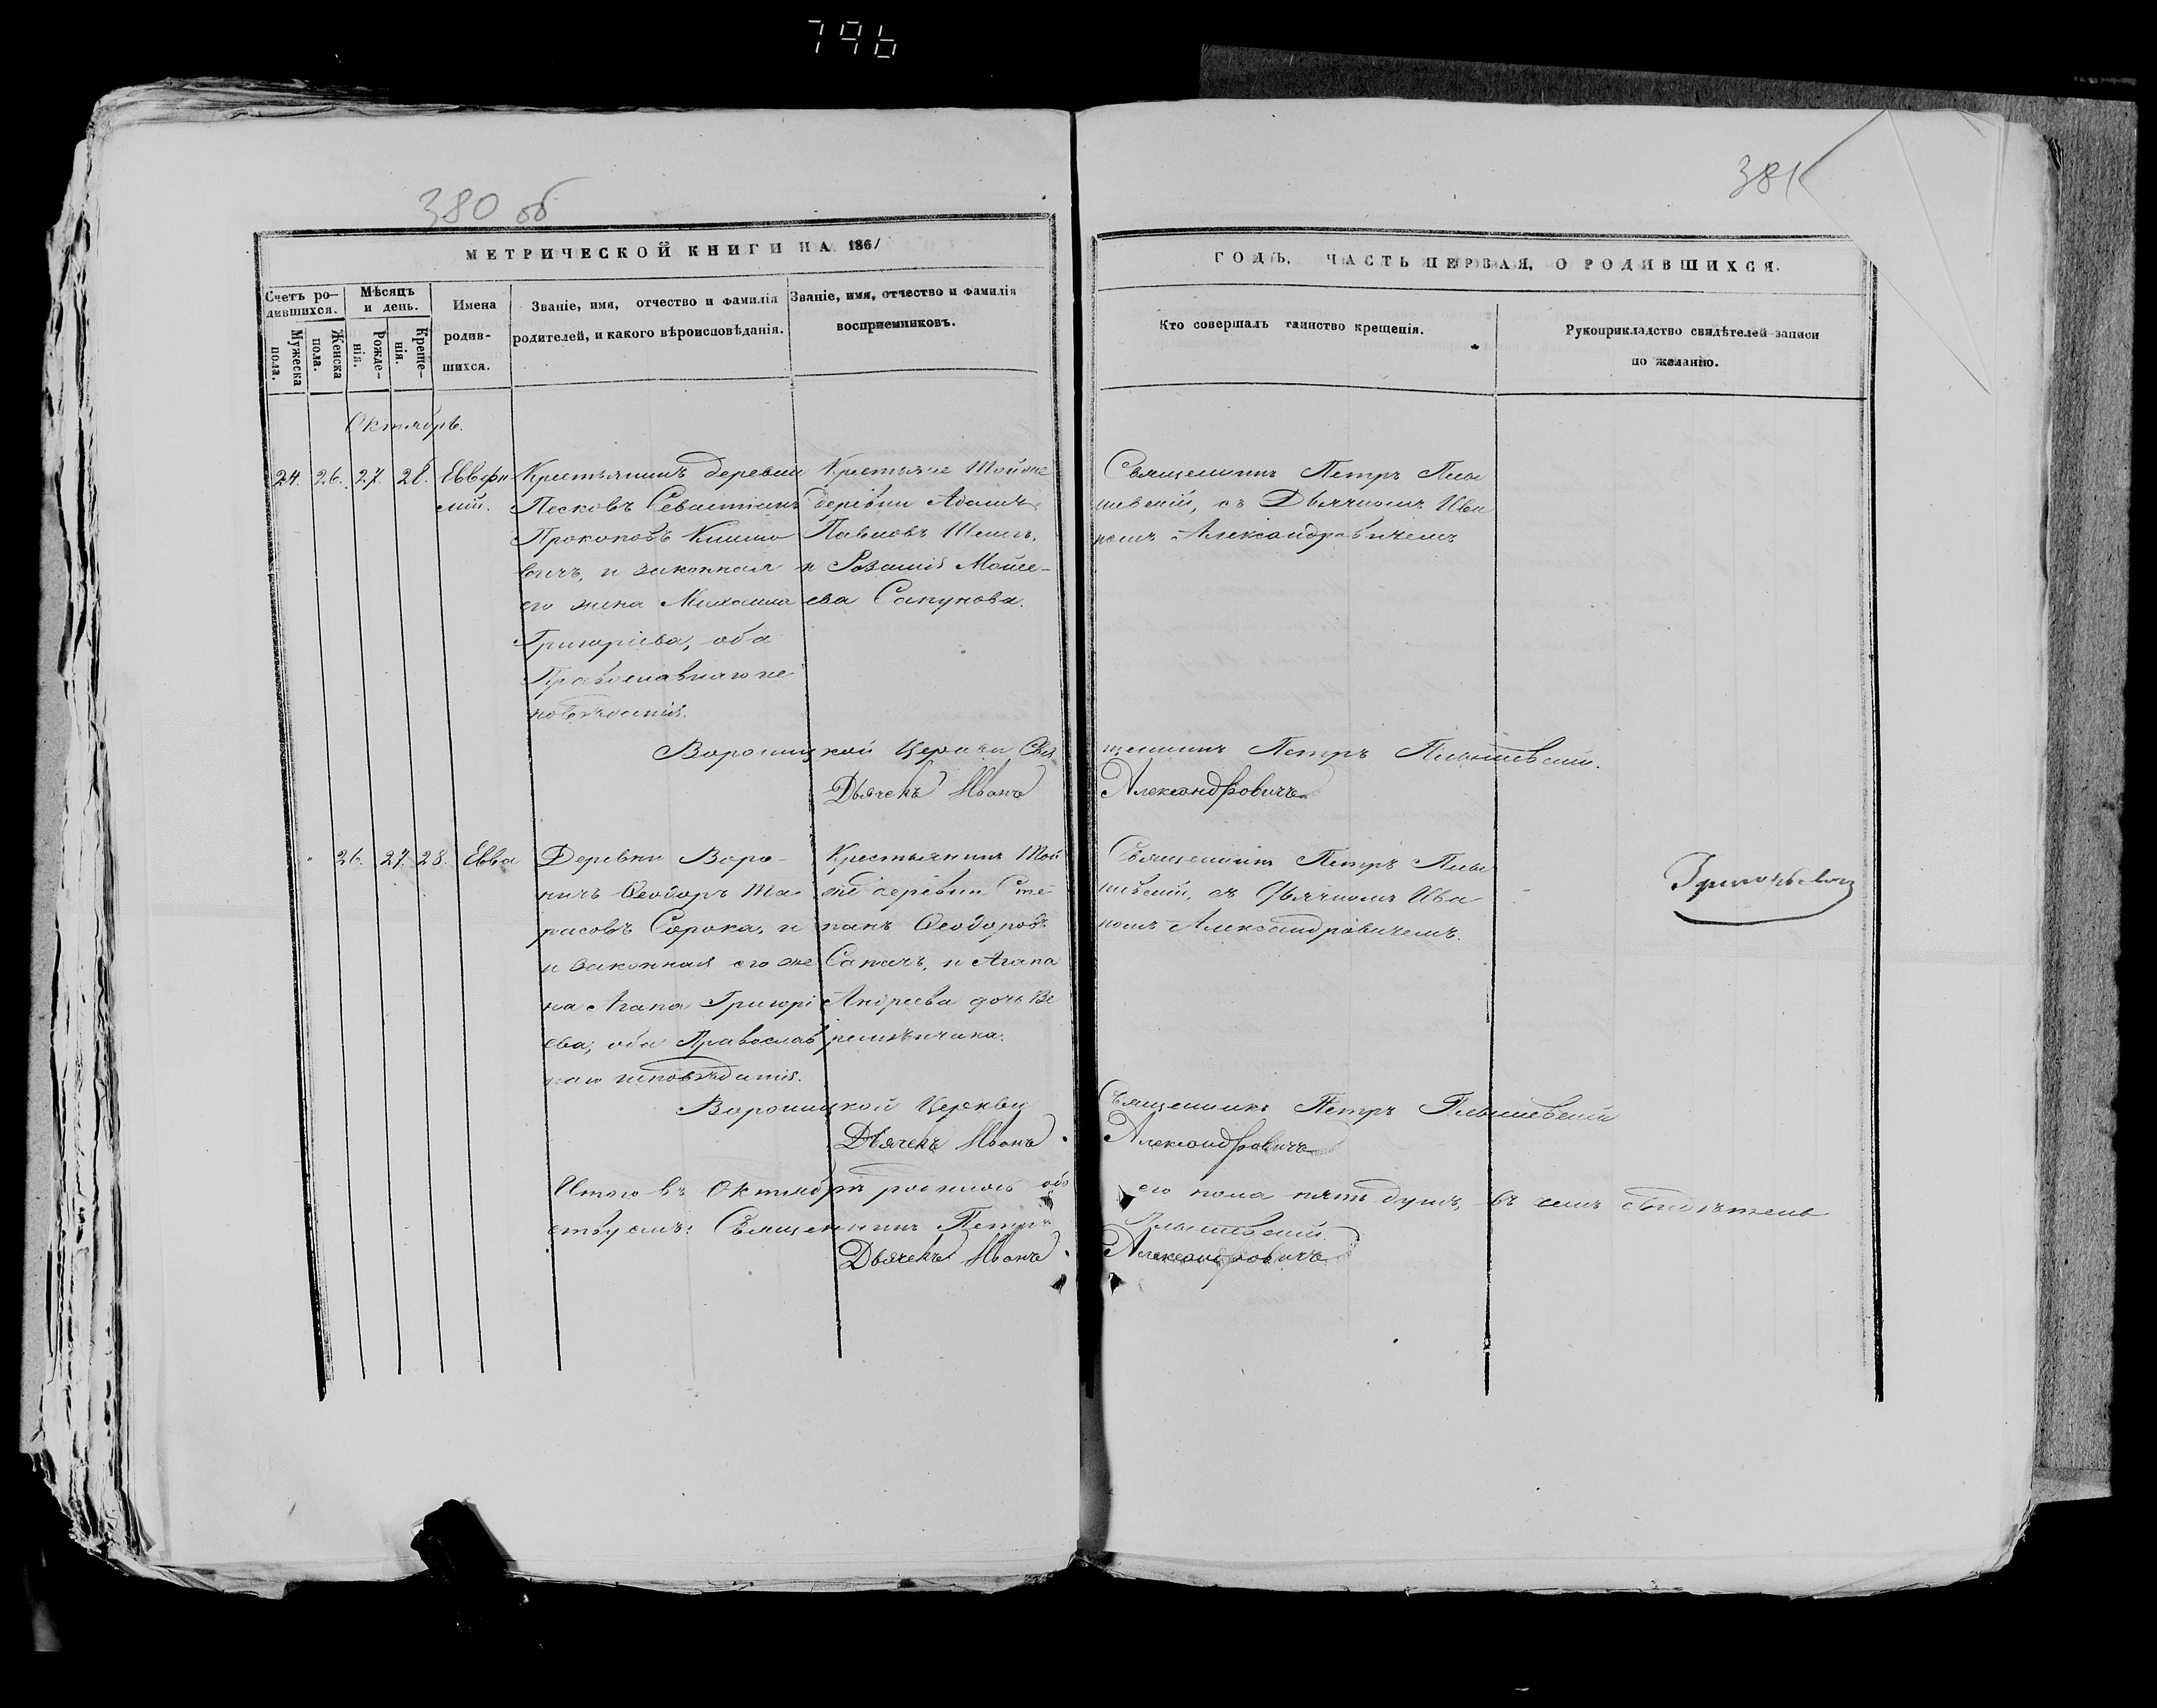 796
380 об
381
МЕТРИЧЕСКОЙ КНИГИ НА 1861
ГОДЪ, ЧАСТЬ ПЕРВАЯ, О РОДИВШИХСЯ.
Счетъ ро-
дившихся.
Мужеска
пола.
Женска
пола.
Мѣсяцъ
и день.
Рожде-
нія.
Креще-
нія.
Имена
родив-
шихся.
Званіе, имя, отчество и фамилія
родителей, и какого вѣроисповѣданія.
Званіе, имя, отчество и фамилія
воспріемниковъ.
Кто совершалъ таинство крещенія.
Рукоприкладство свидѣтелей записи
по желанію.
Октябрь.
24. 26. 27. 28.
Евфи
мій.
Крестьянинъ деревни
Песковъ Севастіанъ
Прокоповъ Климо
вичъ, и законная
его жена
Григоріева, оба
Православнаго ис
повѣданія.
Крестьяне Тойже
деревни Адамъ
Павловъ
и Розалія Моисе-
ева Сапунова.
Священникъ Петръ
съ Дьячкомъ Ива
номъ Александровичемъ
Вороницкой Церкви Свя
щенникъ Петръ
Дьячекъ Иванъ
Александровичъ
" 26. 27. 28. Евва
Деревни Воро-
ничъ Ѳеодоръ Та-
расовъ Сорока, и
и законная его же
на Агапа Григорі
ева, оба Православ
наго исповѣданія.
Крестьянинъ Той
же деревни Сте
панъ Ѳеодоровъ
и Агапа
Андреева дочь Ве
Священникъ Петръ
съ Дьячкомъ Ива
номъ Александровичемъ.
Вороницкой Церкви
Священникъ Петръ
Дьячекъ Иванъ
Александровичъ
Итого въ Октябрѣ родилось обо
его пола пять душъ, въ чемъ свидѣтель
ствуемъ: Священникъ Петръ
Дьячекъ Иванъ
Александровичъ